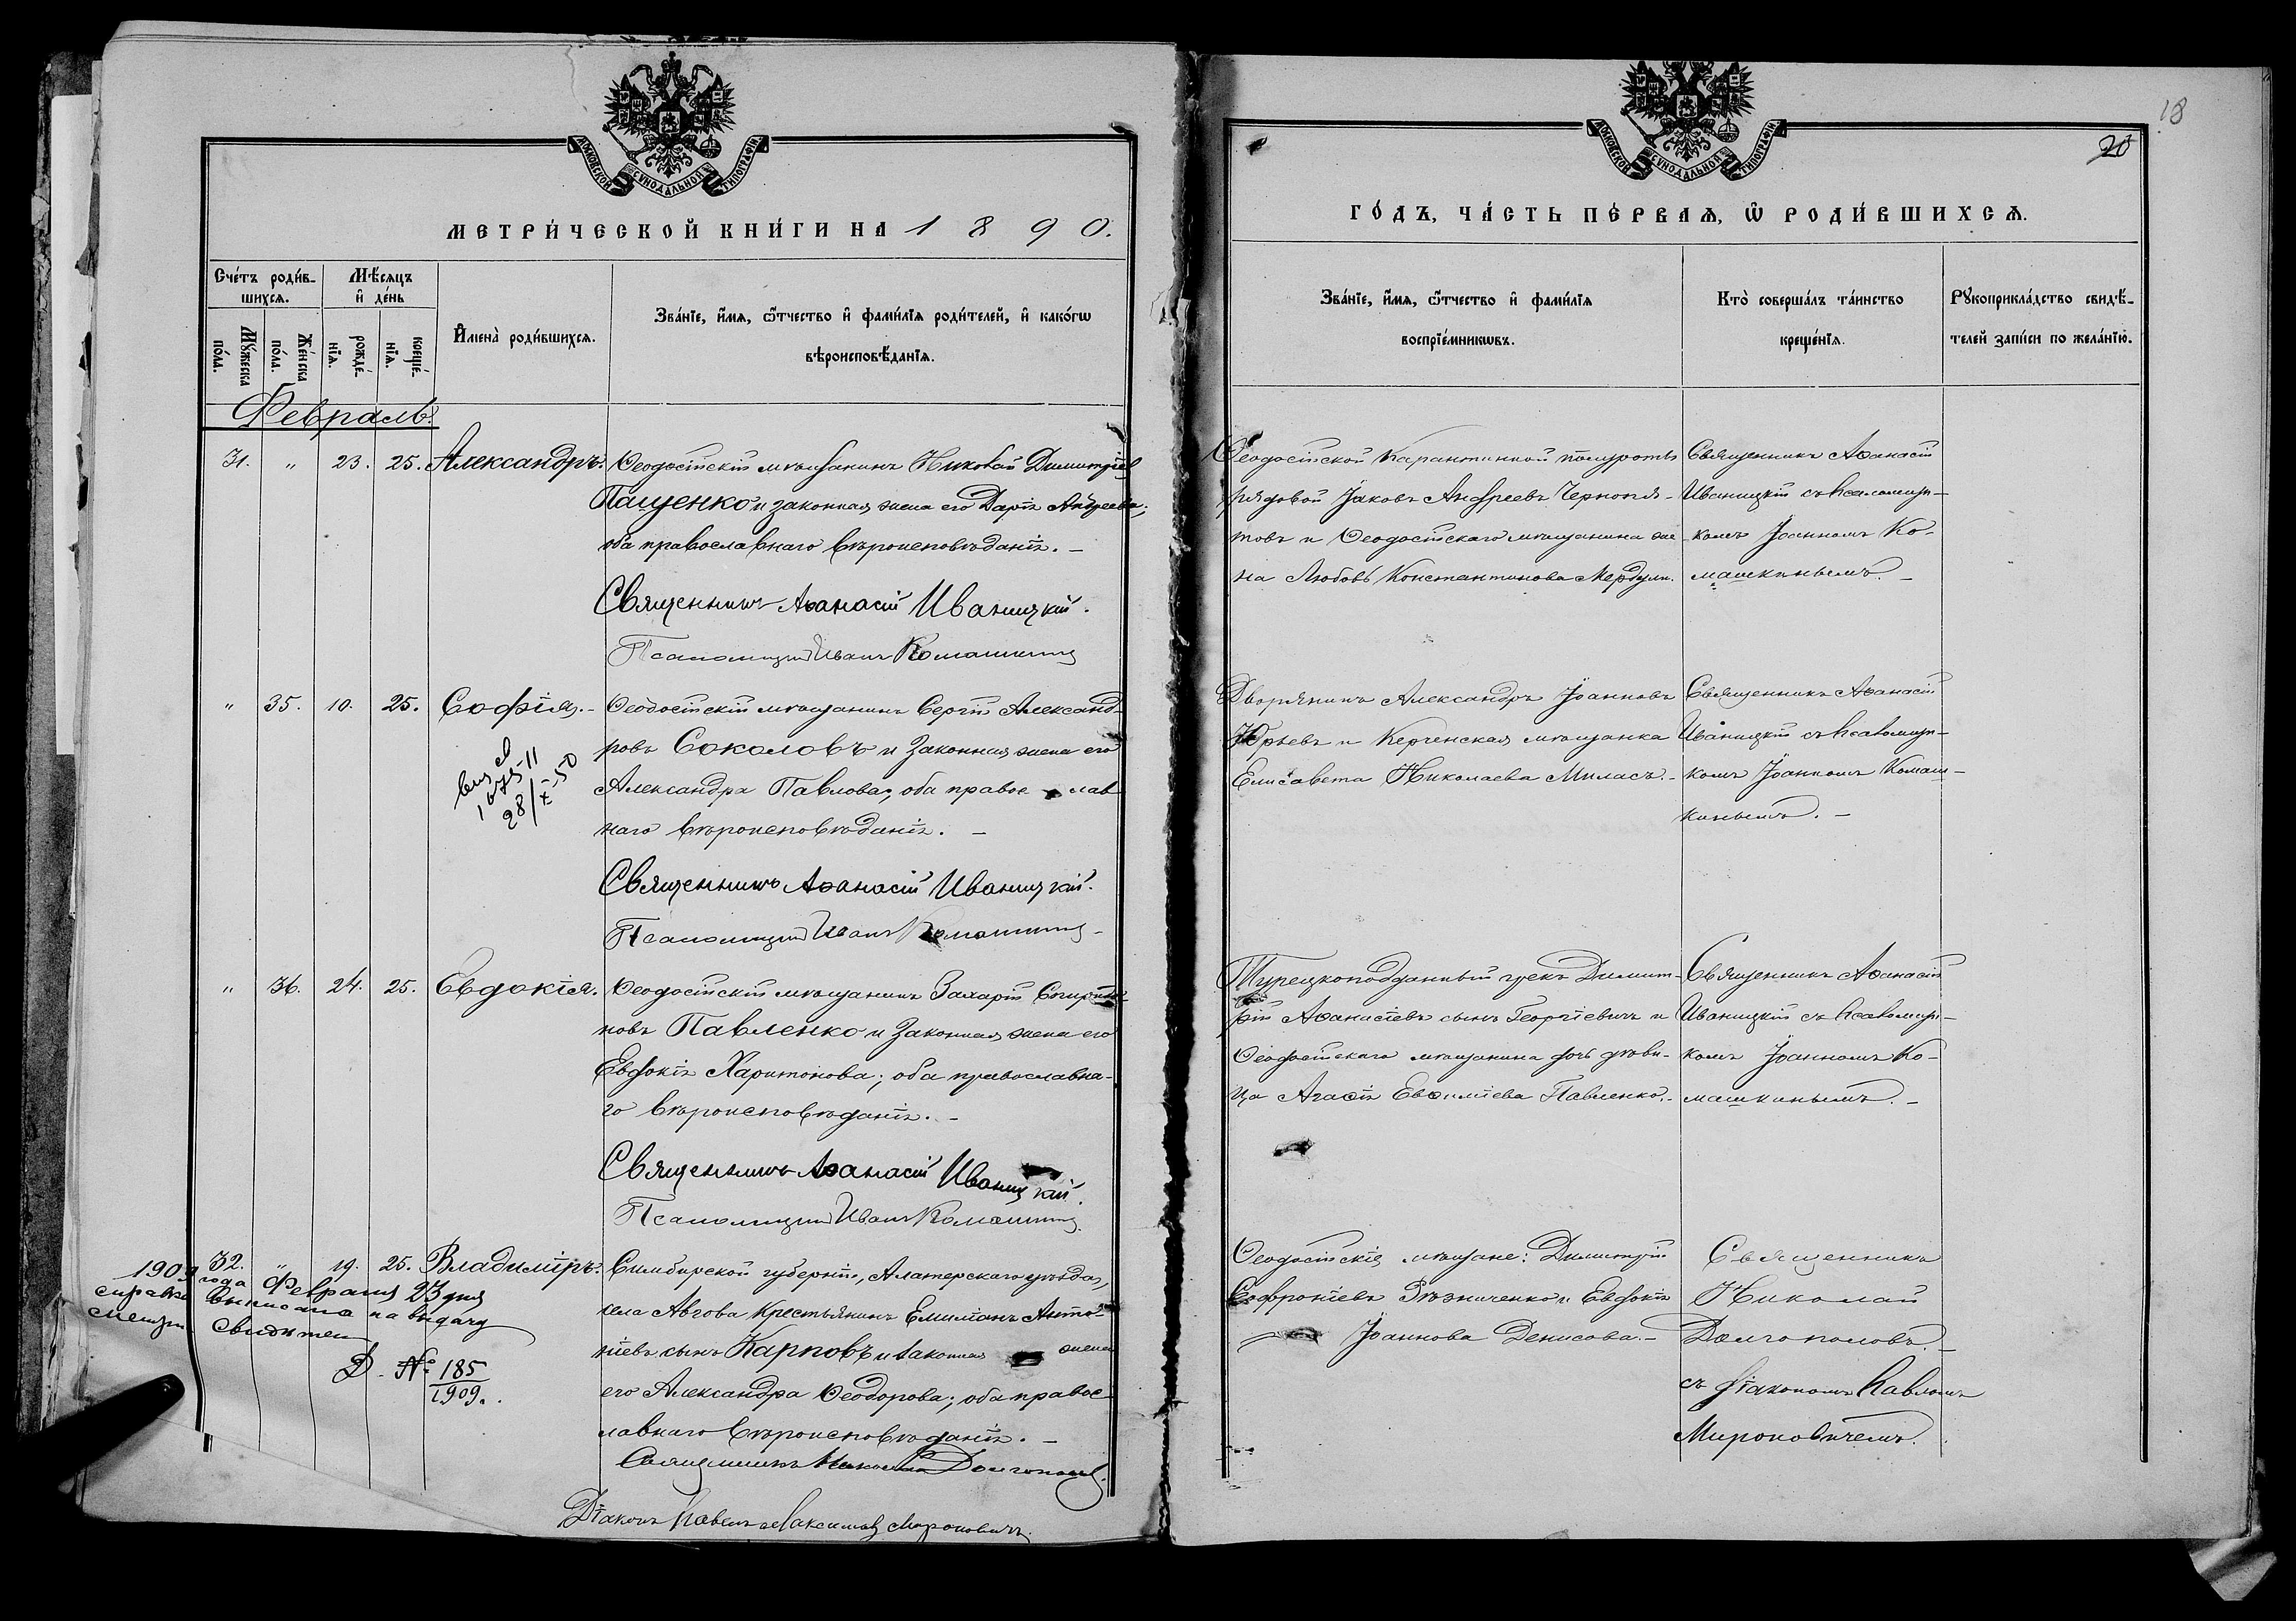 МОСКОВСКОЙ СѴНОДАЛЬНОЙ ТИПОГРАФІИ
МЕТРИ́ЧЕСКОЙ КНИ́ГИ НА 1890.
Сче́тъ роди́в-
шихсѧ.
Мѣ́сяцъ
и҆ де́нь
Мꙋ́жеска
по́ла.
Же́нска
по́ла.
рожде́-
нїѧ.
креще́-
нїѧ.
И҆мена̀ роди́вшихсѧ.
Зва́нїе, и҆́мѧ, ѻ҆́тчество и҆ фами́лїѧ роди́телей, и҆ како́гѡ
вѣроисповѣ́данїѧ.
Февраль.
31. " 23. 25. Александръ.
Ѳеодосійскій мѣщанинъ Николай Димитріев
Пащенко и законная жена его Дарія Андреева;
оба православнаго вѣроисповѣданія. –
Священникъ Аѳанасій Иваницкій.
Псаломщикъ Иванъ Комашкинъ
" 35. 10. 25. Софія. –
Ѳеодосійскій мѣщанинъ Сергій Александ-
ровъ Соколовъ и законная жена его
Александра Павлова, оба правос лав
наго вѣроисповѣданія. –
1675-11
28/X-50
Священникъ Аѳанасій Иваницкій.
Псаломщикъ Иванъ Комашкинъ
" 36. 24. 25. Евдокія.
Ѳеодосійскій мѣщанинъ Захарій Спиридо-
новъ Павленко и законная жена его
Евдокія Харитонова; оба православна-
го вѣроисповѣданія. –
Священникъ Аѳанасій Иваницкій.
Псаломщикъ Иванъ Комашкинъ
32. " 19. 25. Владиміръ.
Симбирской губерніи, Алатерскаго уѣзда,
села Авгова крестьянинъ Емиліанъ Анто-
ніевъ сынъ Карповъ и законная жена
его Александра Ѳеодорова; оба правос
лавнаго вѣроисповѣданія. –
1909 года Февраля 23 дня
справка выписана на выдачу
метри свидѣтел
Д. № 185
1909.
Священникъ Николай Долгополовъ.
Діаконъ Павелъ Максимовъ Мироновичъ.
18
20
МОСКОВСКОЙ СѴНОДАЛЬНОЙ ТИПОГРАФІИ
ГО́ДЪ, ЧА́СТЬ ПЕ́РВАѦ, Ѽ РОДИ́ВШИХСѦ.
Зва́нїе, и҆́мѧ, ѻ҆́тчество и҆ фами́лїѧ
воспрїе́мникѡвъ.
Кто̀ соверша́лъ та́инство
креще́нїѧ.
Рꙋкоприкла́дство свидѣ́-
телей за́писи по жела́нїю.
Ѳеодосійской Карантинной полуроты
рядовой Іаковъ Андреевъ Черноля-
товъ и Ѳеодосійскаго мѣщанина же
на Любовь Константинова Мердули.
Священникъ Аѳанасій
Иваницкій съ псаломщи-
комъ Іоанномъ Ко-
машкинымъ. –
Дворянинъ Александръ Іоанновъ
Юрьевъ и Керченская мѣщанка
Елисавета Николаева Миласъ. –
Священникъ Аѳанасій
Иваницкій съ псаломщи-
комъ Іоанномъ Комаш-
кинымъ. –
Турецкоподданный грекъ Димит-
рій Аѳанасіевъ сынъ Георгіевичъ и
Ѳеодосійскаго мѣщанина дочь дѣви-
ца Агаѳія Евѳиміева Павленко. –
Священникъ Аѳанасій
Иваницкій съ псаломщи-
комъ Іоанномъ Ко-
машкинымъ. –
Ѳеодосійскіе мѣщане: Димитрій
Софроніевъ Рѣзниченко и Евдокія
Іоаннова Денисова. –
Священникъ
Николай
Долгополовъ. –
съ діакономъ Павломъ
Мироновичемъ.